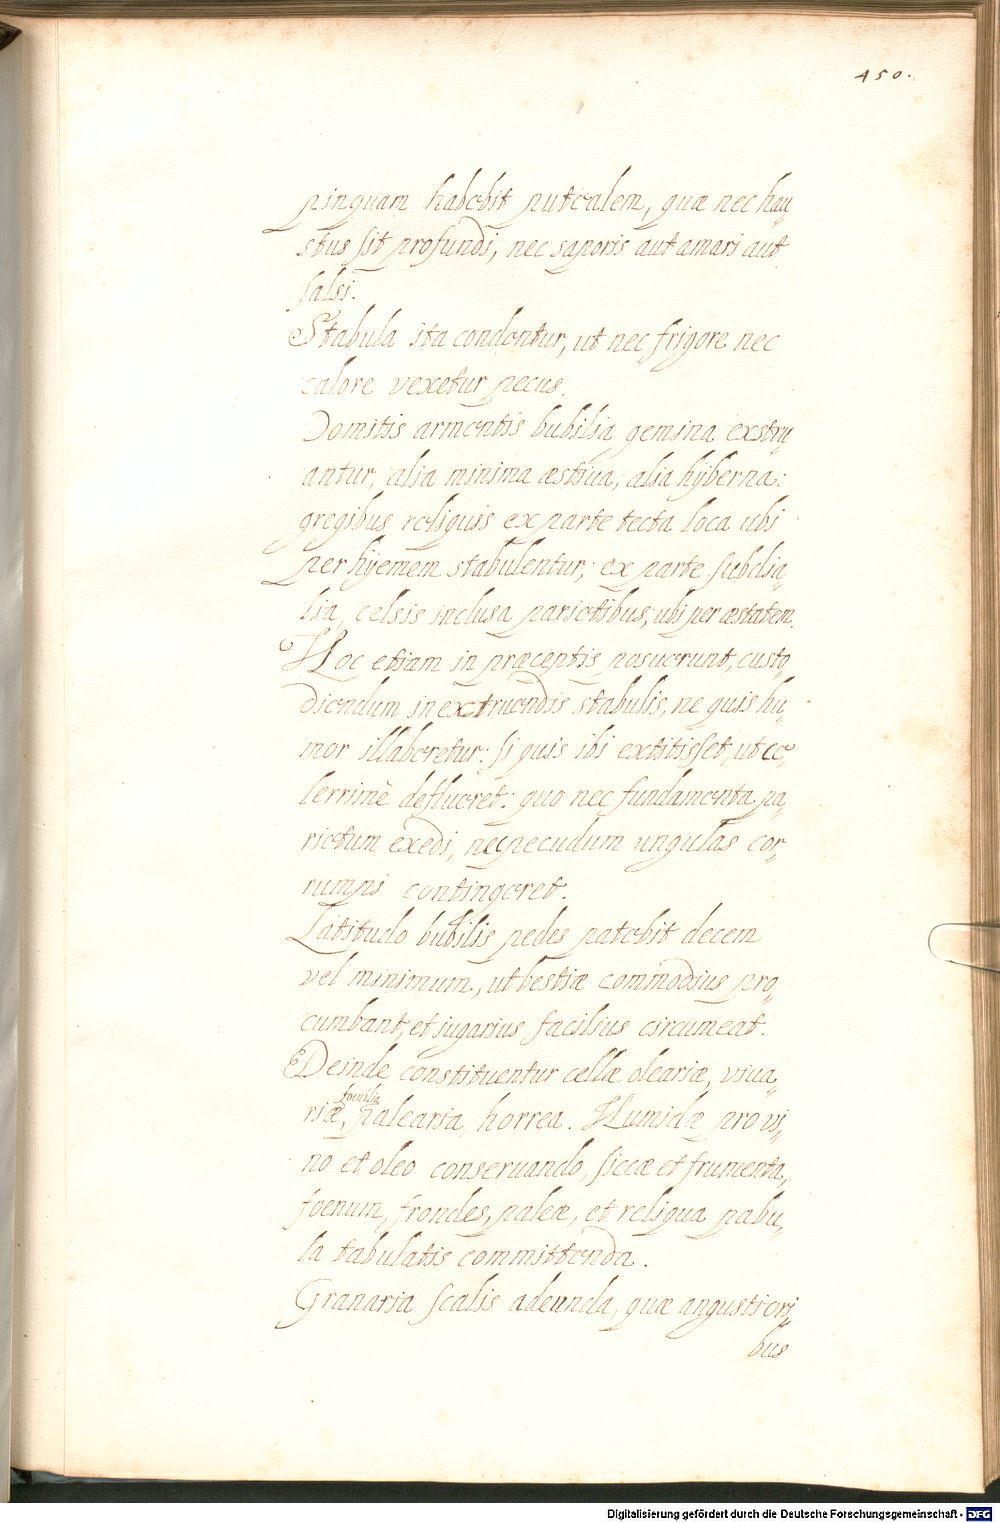 450.
pinguam habebit putealem, quæ nec hau„
stus sit profundi, nec saporis aut amari aut
salsi.
Stabula ita condentur, ut nec frigore nec
calore vexetur pecus.
Domitis armentis bubilia gemina exstru„
antur, alia minima æstiua, alia hÿberna:
gregibus reliquis ex parte tecta loca ubi
per hÿemem stabulentur; ex parte subdia„
lia, celsis inclusa parietibus, ubi per æstatem.
Hoc etiam in præceptis posuerunt, custo„
diendum in extruendis stabulis, ne quis hu„
mor illaberetur: si quis ibi extitisset, ut ce„
lerrimè deflueret: quo nec fundamenta pa„
rietum exedi, nec pecudum ungulas cor„
rumpi contingeret.
Latitudo bubilis pedes patebit decem
vel minimum, ut bestiæ commodius pro„
cumbant, et iugarius facilius circumeat.
Deinde constituentur cellæ oleariæ, viua„
foenilia
riæ, palearia, horrea. Humidæ pro vi„
no et oleo conseruando, siccæ et frumenta,
foenum, frondes, paleæ, et reliqua pabu„
la tabulatis committenda.
Granaria scalis adeunda, quæ angustiori„
bus
Digitalisierung gefördert durch die Deutsche Forschungsgemeinschaft - DFG